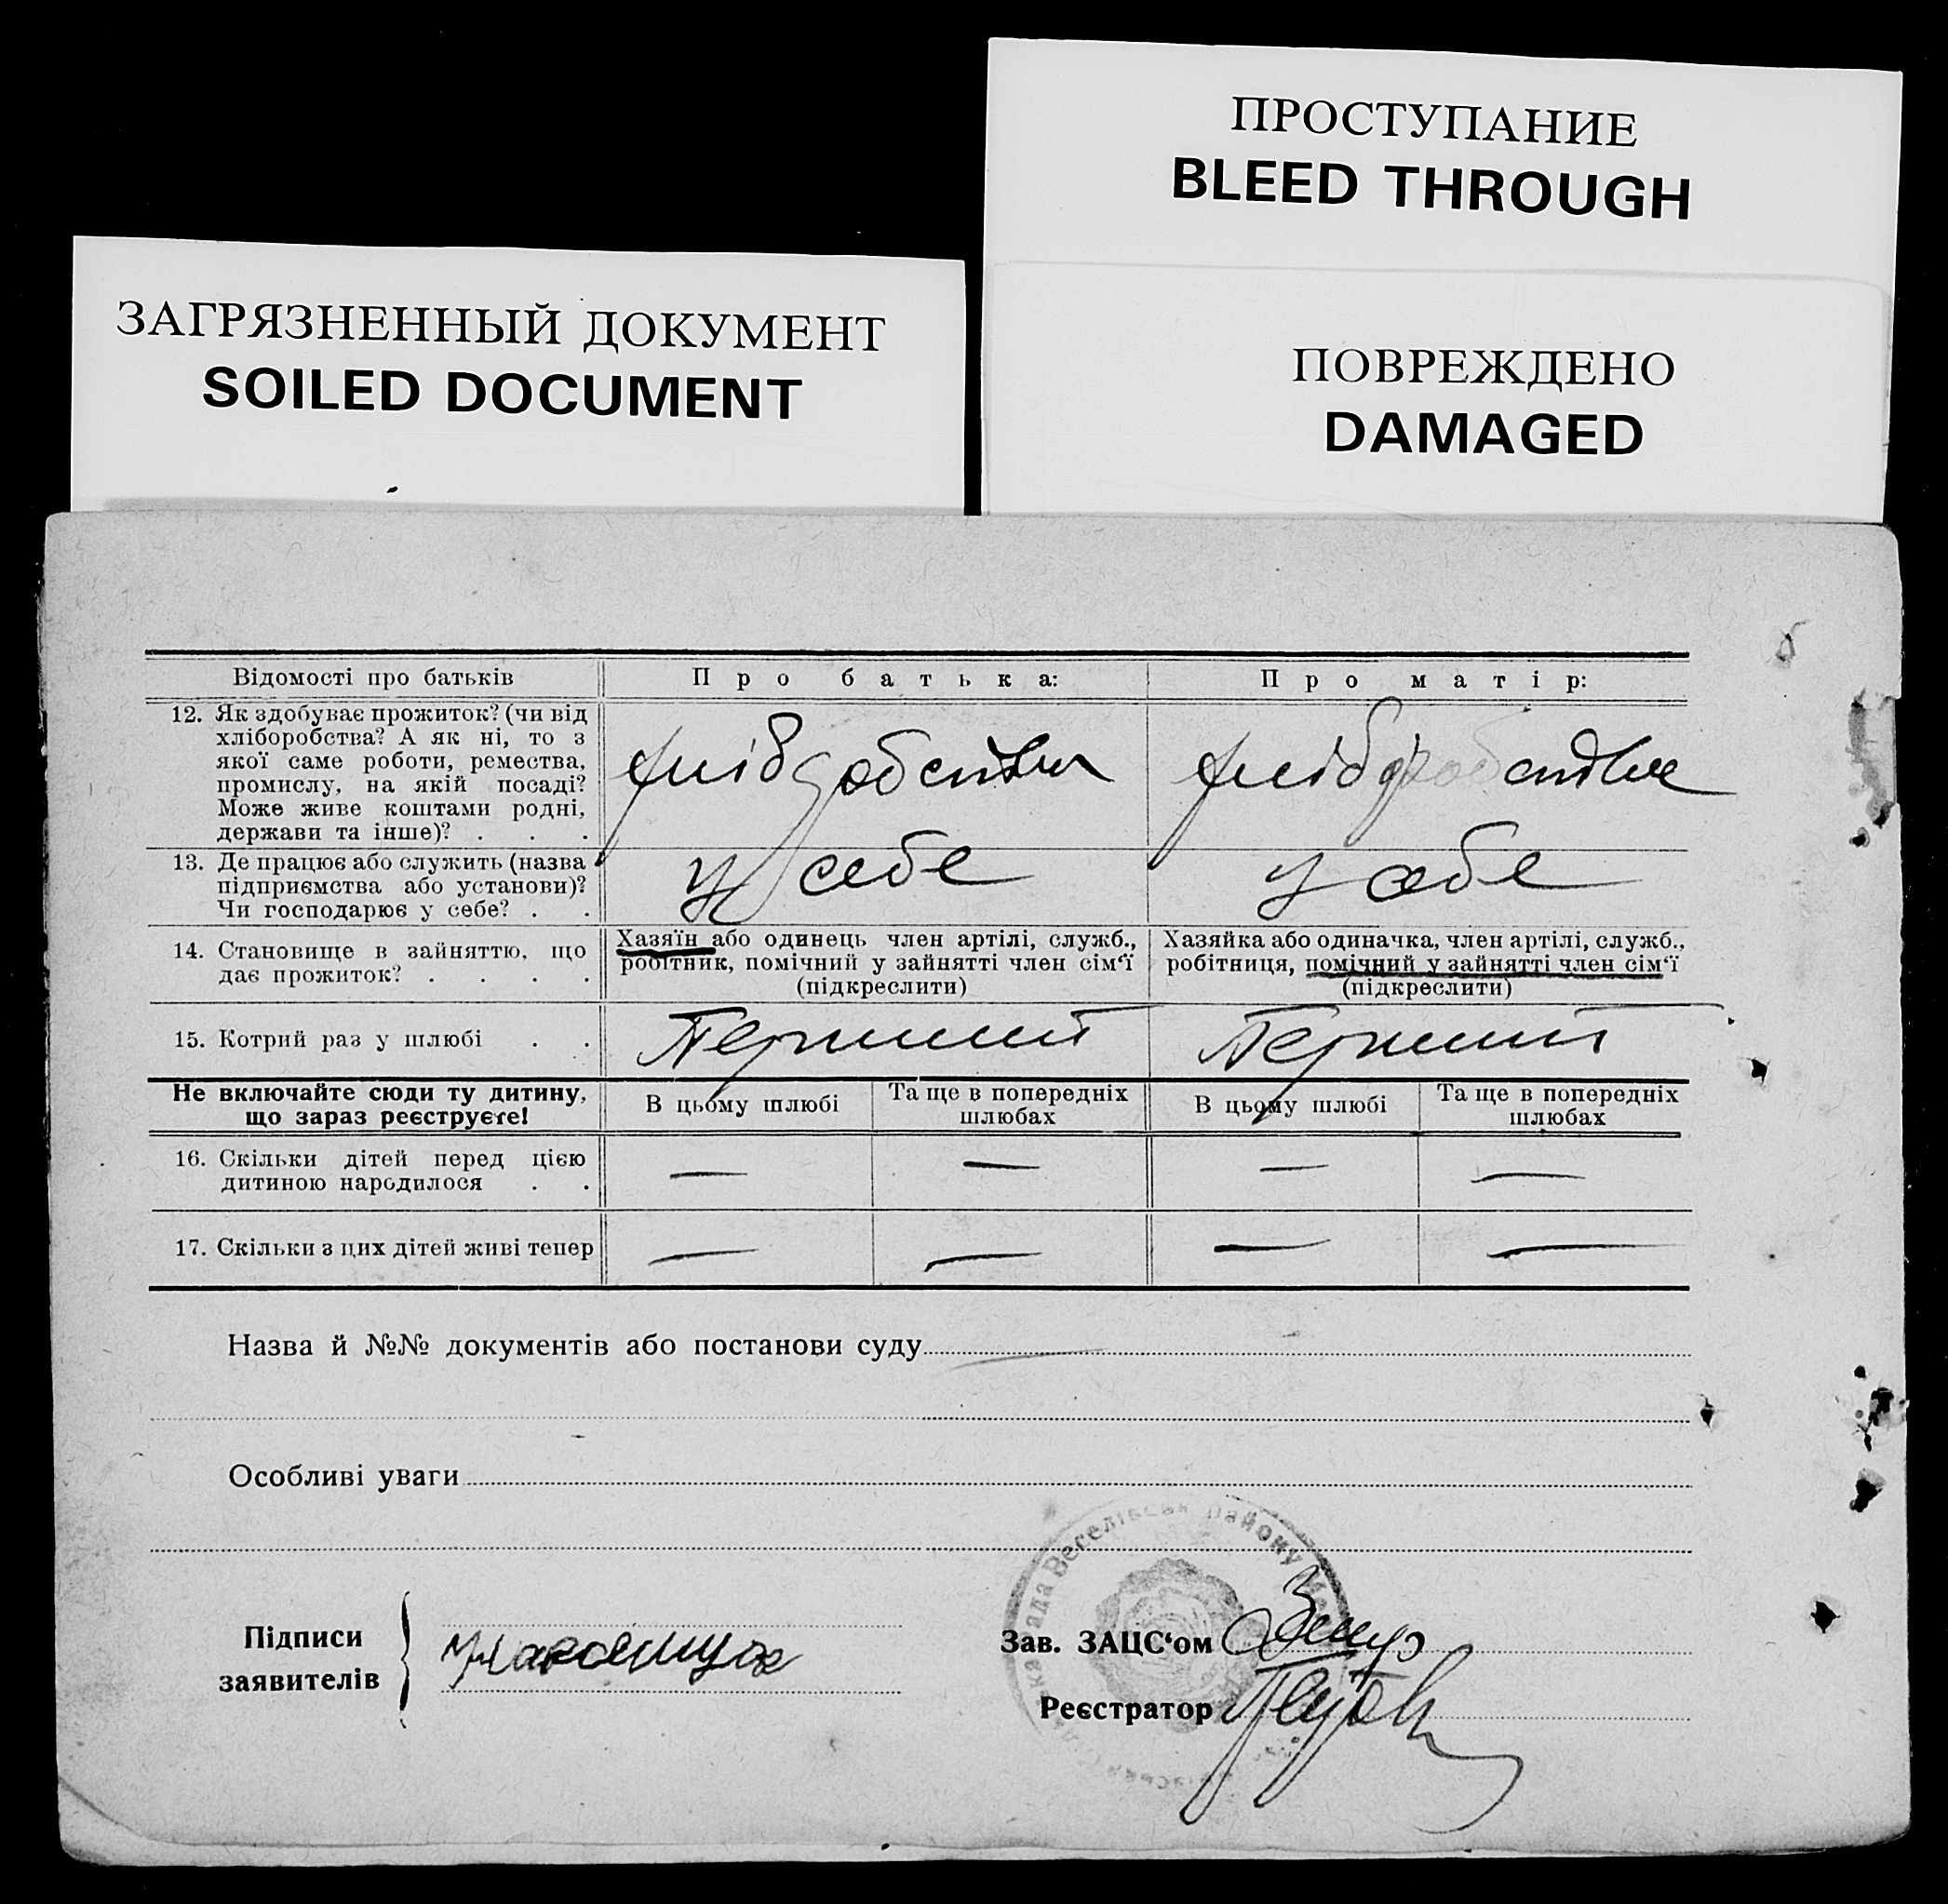 ПРОСТУПАНИЕ
BLEED THROUGH
ЗАГРЯЗНЕННЫЙ ДОКУМЕНТ
SOILED DOCUMENT
ПОВРЕЖДЕНО
DAMAGED
Відомості про батьків
Про батька:
Про матір:
12. Як здобуває прожиток? (чи від
хліборобства? А як ні, то з
якої саме роботи, ремества,
промислу, на якій посаді?
Може живе коштами родні,
держави та інше)? . . .
хлібробства
хлібробства
13. Де працює або служить (назва
підприємства або установи)?
Чи господарює у себе? . .
у себе
у себе
14. Становище в зайняттю, що
дає прожиток? . . . .
Хазяїн або одинець член артілі, служб.,
робітник, помічний у зайнятті член сім‘ї
(підкреслити)
Хазяйка або одиначка, член артілі, служб.,
робітниця, помічний у зайнятті член сім‘ї
(підкреслити)
15. Котрий раз у шлюбі . .
Перший
Перший
Не включайте сюди ту дитину,
що зараз реєструєте!
В цьому шлюбі
Та ще в попередніх
шлюбах
В цьому шлюбі
Та ще в попередніх
шлюбах
16. Скільки дітей перед цією
дитиною народилося . .
— — — —
17. Скільки з цих дітей живі тепер
— — — —
Назва й №№ документів або постанови суду
Особливі уваги
рада Веселівськ району
Підписи
заявителів
Зав. ЗАЦС‘ом
Реєстратор